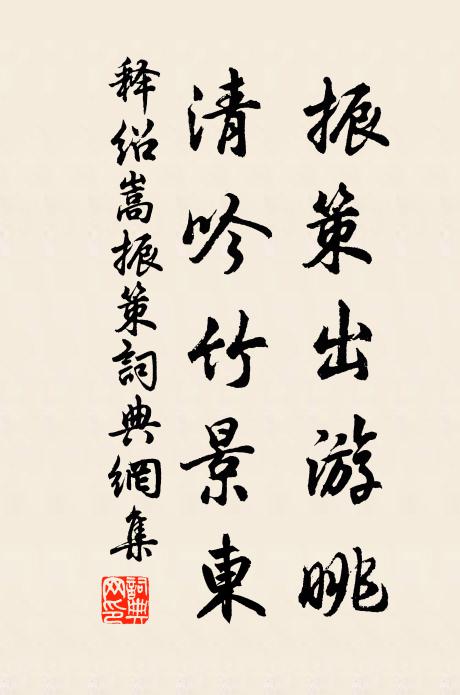 振策出游眺
清吟竹景東
释绍嵩振策詞典網集
詞典网印